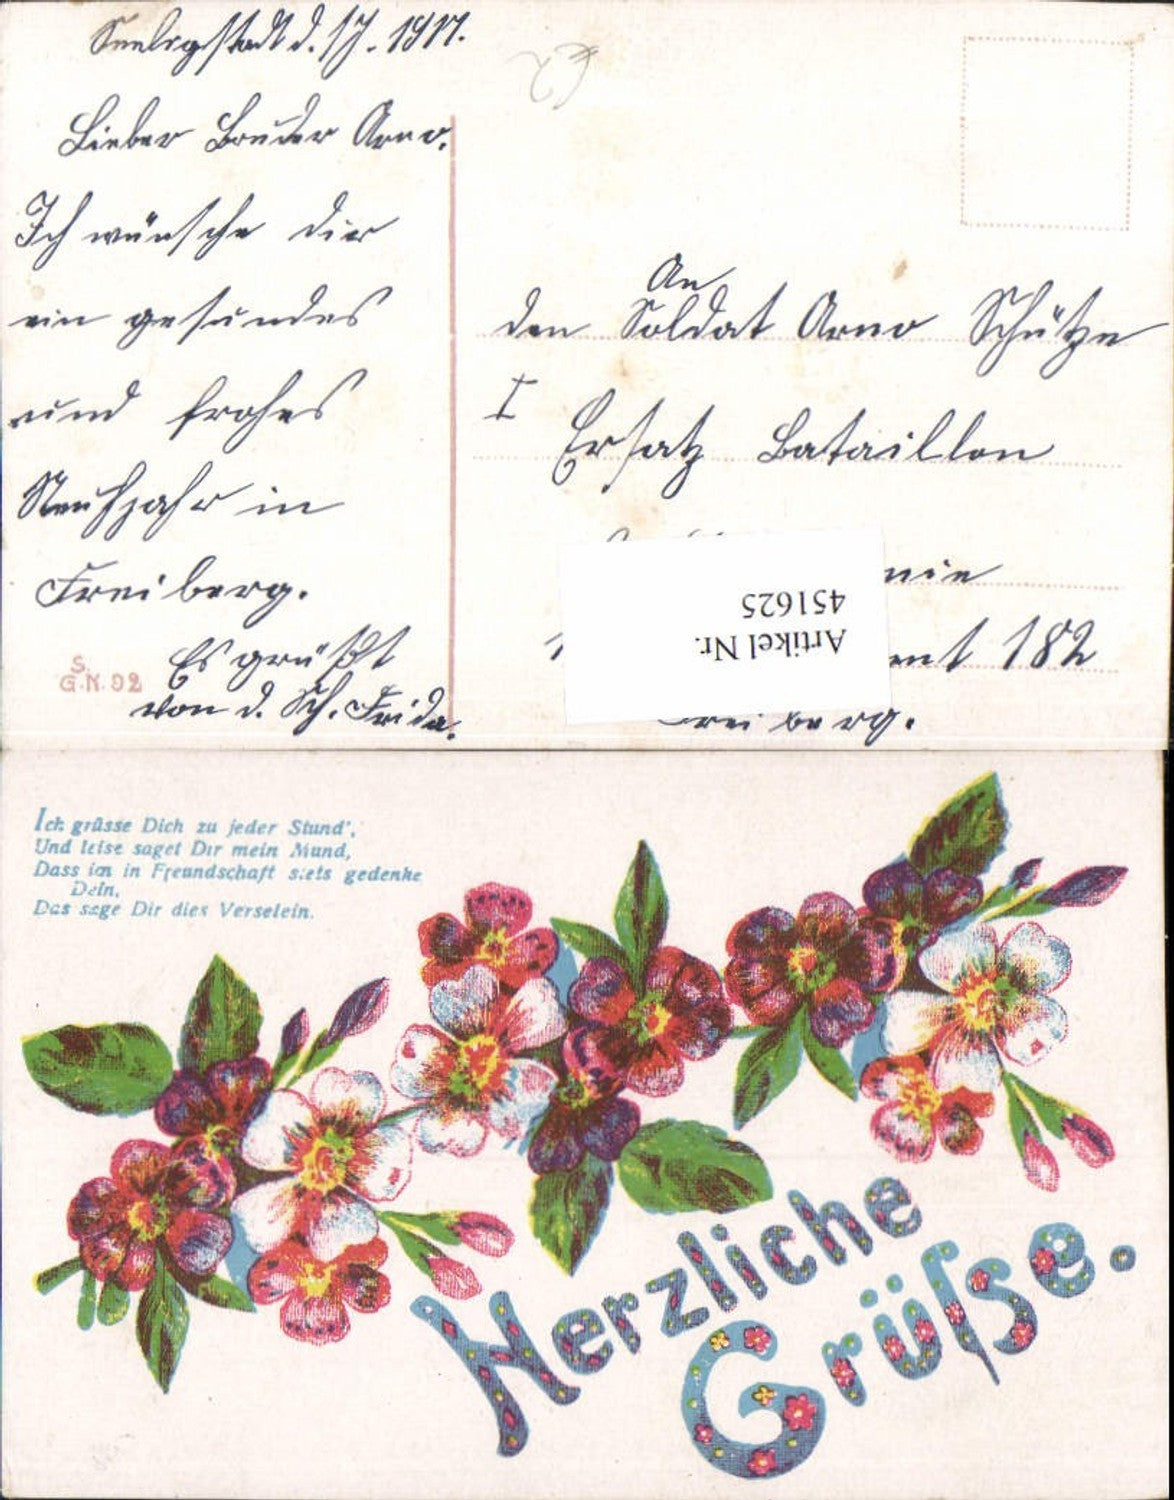 Seeligstadt d. 1/1. 1917.
Lieber Bruder Arno.
Ich wünsche dir
ein gesundes
und frohes
Neuhjahr in
Freiberg.
Es grüßt
von d. Sch. Frida.
S.
G.K.92
An
den Soldat Arno Schütze
I
Ersatz Bataillon
nie
ent 182
Freiberg.
Artikel Nr.
451625
Ich grüsse Dich zu jeder Stund',
Und leise saget Dir mein Mund,
Dass ich in Freundschaft stets gedenke
Dein,
Das sage Dir dies Verselein.
Herzliche
Grüße.